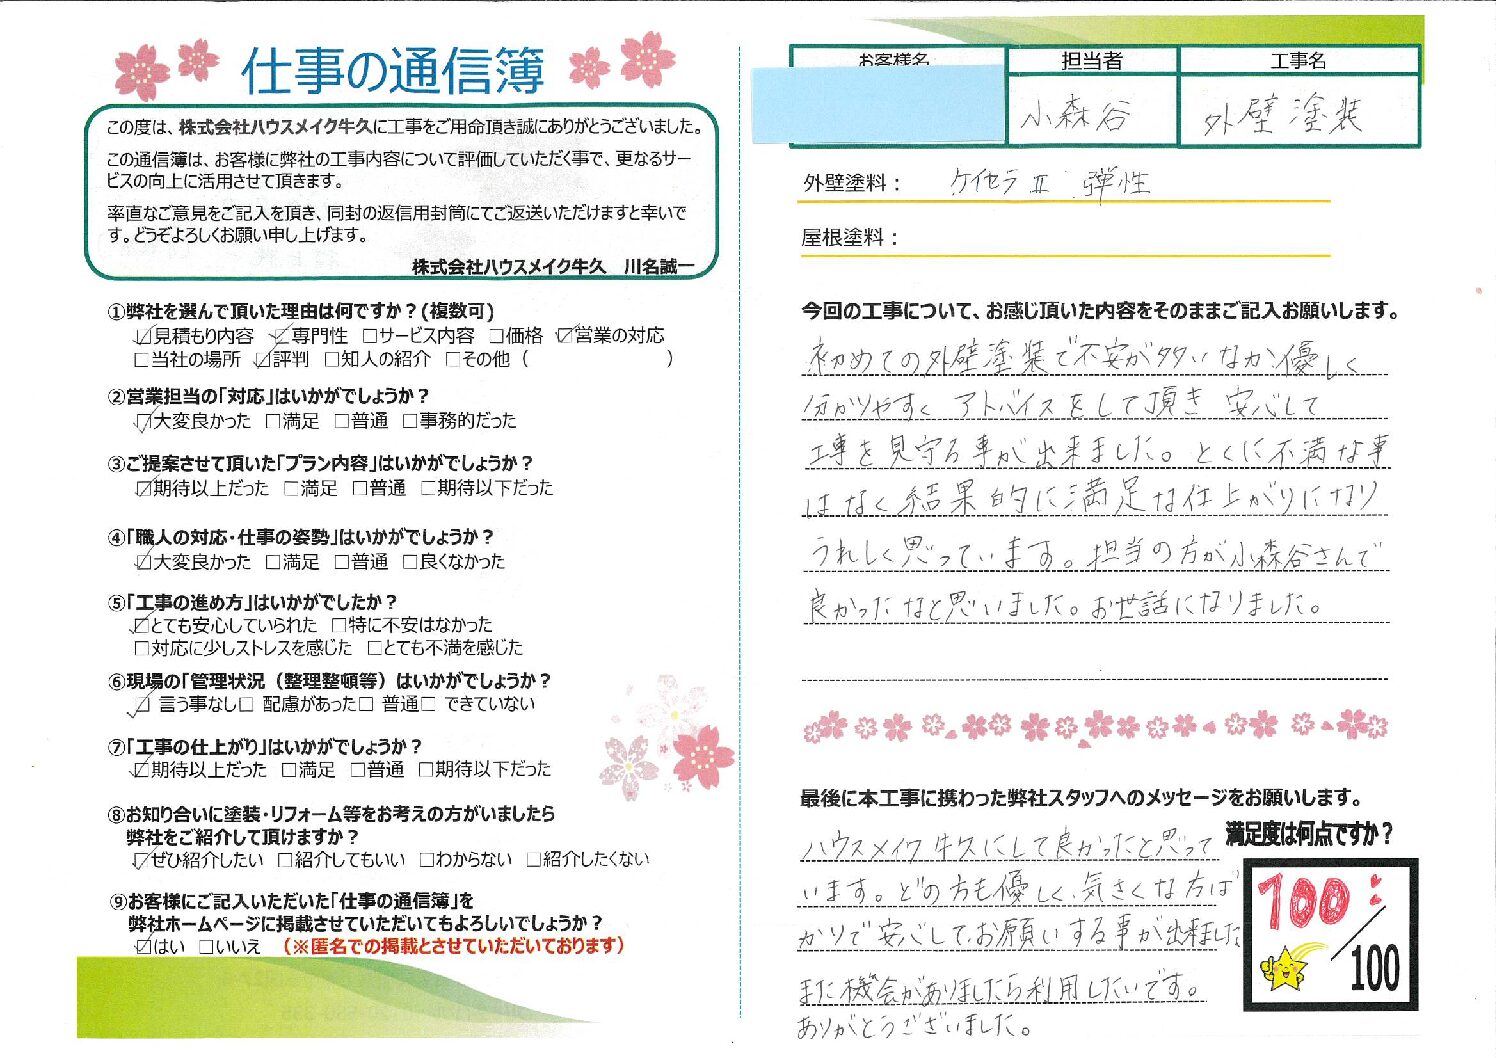 仕事の通信簿
この度は、株式会社ハウスメイク牛久に工事をご用命頂き誠にありがとうございました。
この通信簿は、お客様に弊社の工事内容について評価していただく事で、更なるサー
ビスの向上に活用させて頂きます。
率直なご意見をご記入を頂き、同封の返信用封筒にてご返送いただけますと幸いで
す。どうぞよろしくお願い申し上げます。
株式会社ハウスメイク牛久 川名誠一
①弊社を選んで頂いた理由は何ですか？(複数可)
☑見積もり内容 ☑専門性 □サービス内容 □価格 ☑営業の対応
□当社の場所 ☑評判 □知人の紹介 □その他（ ）
②営業担当の「対応」はいかがでしょうか？
☑大変良かった □満足 □普通 □事務的だった
③ご提案させて頂いた「プラン内容」はいかがでしょうか？
☑期待以上だった □満足 □普通 □期待以下だった
④「職人の対応・仕事の姿勢」はいかがでしょうか？
☑大変良かった □満足 □普通 □良くなかった
⑤「工事の進め方」はいかがでしたか？
☑とても安心していられた □特に不安はなかった
□対応に少しストレスを感じた □とても不満を感じた
⑥現場の「管理状況（整理整頓等）はいかがでしょうか？
☑ 言う事なし□ 配慮があった□ 普通□ できていない
⑦「工事の仕上がり」はいかがでしょうか？
☑期待以上だった □満足 □普通 □期待以下だった
⑧お知り合いに塗装・リフォーム等をお考えの方がいましたら
弊社をご紹介して頂けますか？
☑ぜひ紹介したい □紹介してもいい □わからない □紹介したくない
⑨お客様にご記入いただいた「仕事の通信簿」を
弊社ホームページに掲載させていただいてもよろしいでしょうか？
☑はい □いいえ （※匿名での掲載とさせていただいております）
お客様名 担当者 工事名
小森谷 外壁塗装
外壁塗料： ケイセラⅡ 弾性
屋根塗料：
今回の工事について、お感じ頂いた内容をそのままご記入お願いします。
初めての外壁塗装で不安が多いなか、優しく
分かりやすく アドバイスをして頂き 安心して
工事を見守る事が出来ました。とくに不満な事
はなく結果的に満足な仕上がりになり
うれしく思っています。担当の方が小森谷さんで
良かったなと思いました。お世話になりました。
最後に本工事に携わった弊社スタッフへのメッセージをお願いします。
満足度は何点ですか？
ハウスメイク牛久にして良かったと思って
います。どの方も優しく、気さくな方ば
かりで安心してお願いする事が出来ました
また機会がありましたら利用したいです。
ありがとうございました。
100
/100